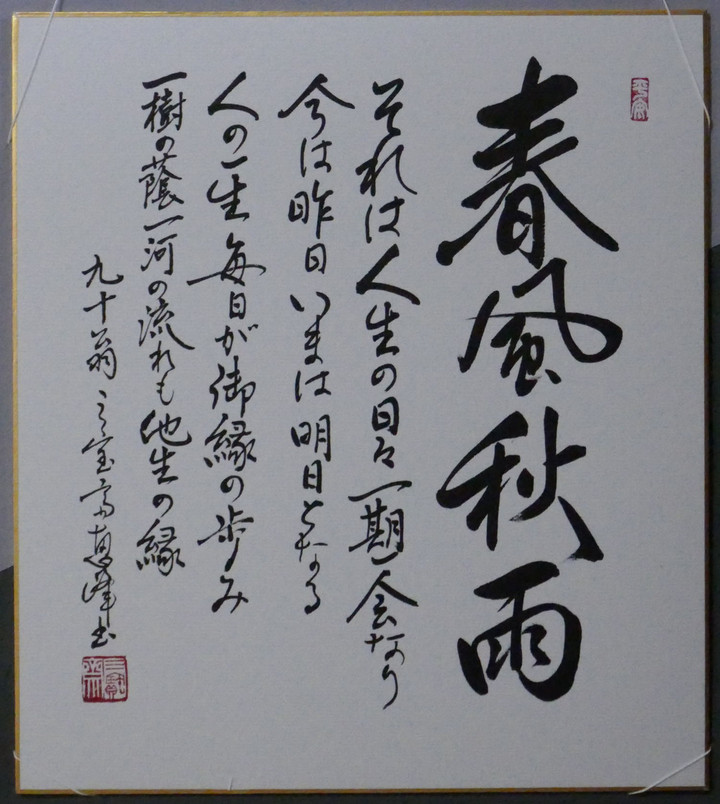 春風秋雨
それは人生の日々一期一会なり
今は昨日いまは明日となる
人の一生毎日が御縁の歩み
一樹の蔭一河の流れも他生の縁
九十翁 三宝斎恵峰書